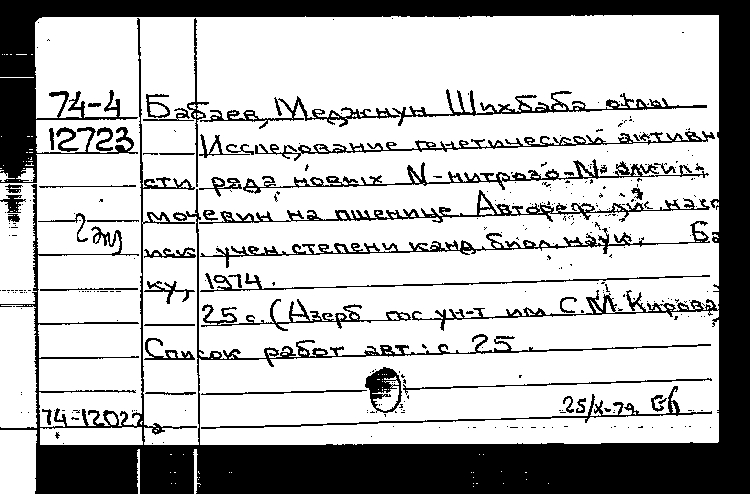 74-4 Бабаев, Меджнун Шихбаба оглы
12723 Исследование генетической активно
сти ряда новых N-нитрозо-N-алкил-
2 экз мочевин на пшенице. Автореф. дис. на со
иск. учен. степени канд. биол. наук. Ба
ку, 1974.
25 с. (Азерб. гос ун-т им. С.М. Кирова
Список работ авт.: с. 25.
25/X-74.
74-12022